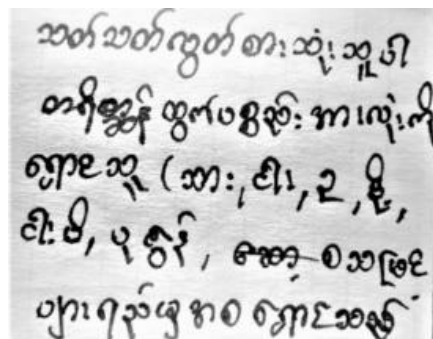 သတ်သတ်လွတ်စားသုံးသူပါ
တရိစ္ဆာန်ထွက်ပစ္စည်းအားလုံးကို
ရှောင်သူ (သား, ငါး, ဥ, နို့,
ငါးပိ, ပုစွန်, စသဖြင့်
ပျားရည်မှအစ ရှောင်သည်